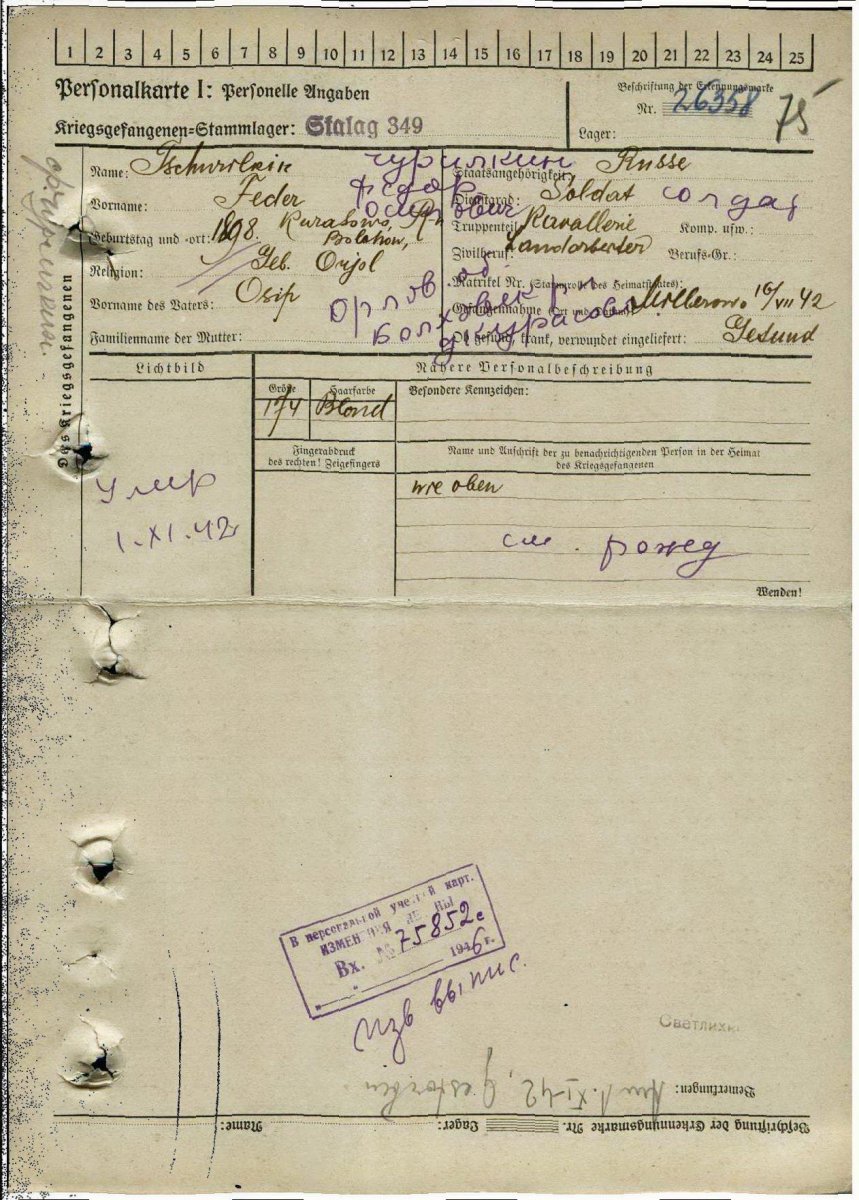 1 2 3 4 5 6 7 8 9 10 11 12 13 14 15 16 17 18 19 20 21 22 23 24 25
Personalkarte I: Personelle Angaben
Kriegsgefangenen=Stammlager: Stalag 349
Beschriftung der Erkennungsmarke
Nr. 26358
75
Lager:
Des Kriegsgefangenen
Name: Tschurilkin Чурилкин
Vorname: Feder Федор
Осипович
Geburtstag und -ort: 1898. Kurasowo,
Bolchow,
Religion: Geb. Orjol
Vorname des Vaters: Osip
Familienname der Mutter:
Staatsangehörigkeit: Russe
Dienstgrad: Soldat солдат
Truppenteil: Kavallerie Komp. usw.:
Zivilberuf: Landarbeiter Berufs-Gr.:
Matrikel Nr. (Stammrolle des Heimatstaates):
Gefangennahme (Ort und Datum): Millerowo 16/VII 42
Ob gesund, krank, verwundet eingeliefert: Gesund
Орлов об
Болховск р-н
д Курасово
Lichtbild
Nähere Personalbeschreibung
Größe
174
Haarfarbe
Blond
Besondere Kennzeichen:
Fingerabdruck
des rechten! Zeigefingers
Name und Anschrift der zu benachrichtigenden Person in der Heimat
des Kriegsgefangenen
wie oben
умер
1.XI.42
см. рожд
Wenden!
В персональной учетной карт.
ИЗМЕНЕНИЯ
Вх. № 75852с
1946 г.
изв выпис.
Bemerkungen: Am 1.XI-42, Gestorben
Beschriftung der Erkennungsmarke Nr.
Lager:
Name: